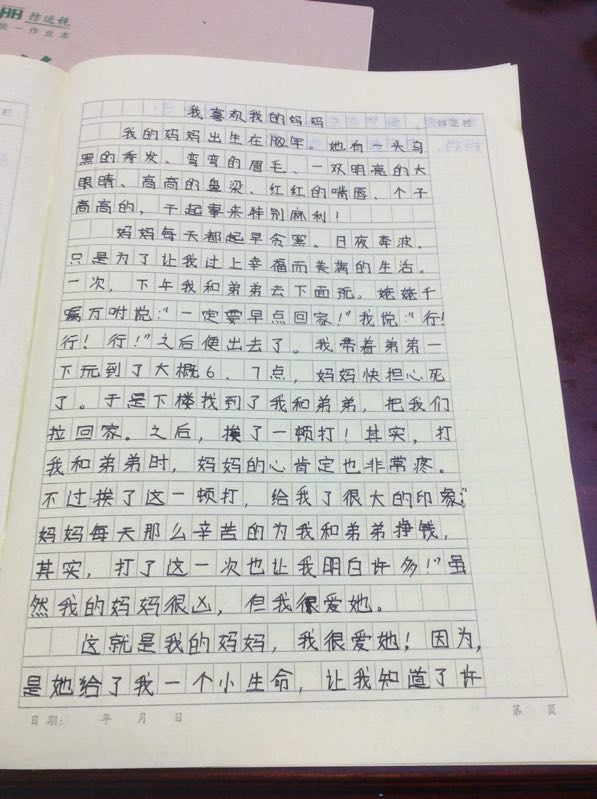 防近视
统一作业本
我喜欢我的妈妈
修正栏
我的妈妈出生在 年。她有一头乌
黑的秀发、弯弯的眉毛、一双明亮的大
眼睛、高高的鼻梁、红红的嘴唇、个子
高高的，干起事来特别麻利！
妈妈每天都起早贪黑、日夜奔波，
只是为了让我过上幸福而美满的生活。
一次，下午我和弟弟去下面玩。姥姥千
嘱万咐说：“一定要早点回家！”我说：“行！
行！行！”之后便出去了。我带着弟弟一
下玩到了大概6、7点，妈妈快担心死
了。于是下楼找到了我和弟弟，把我们
拉回家。之后，挨了一顿打！其实，打
我和弟弟时，妈妈的心肯定也非常疼。
不过挨了这一顿打，给我了很大的印象：“
妈妈每天那么辛苦的为我和弟弟挣钱，
其实，打了这一次也让我明白许多！”虽
然我的妈妈很凶，但我很爱她。
这就是我的妈妈，我很爱她！因为，
是她给了我一个小生命，让我知道了许
日期： 年 月 日 第 页